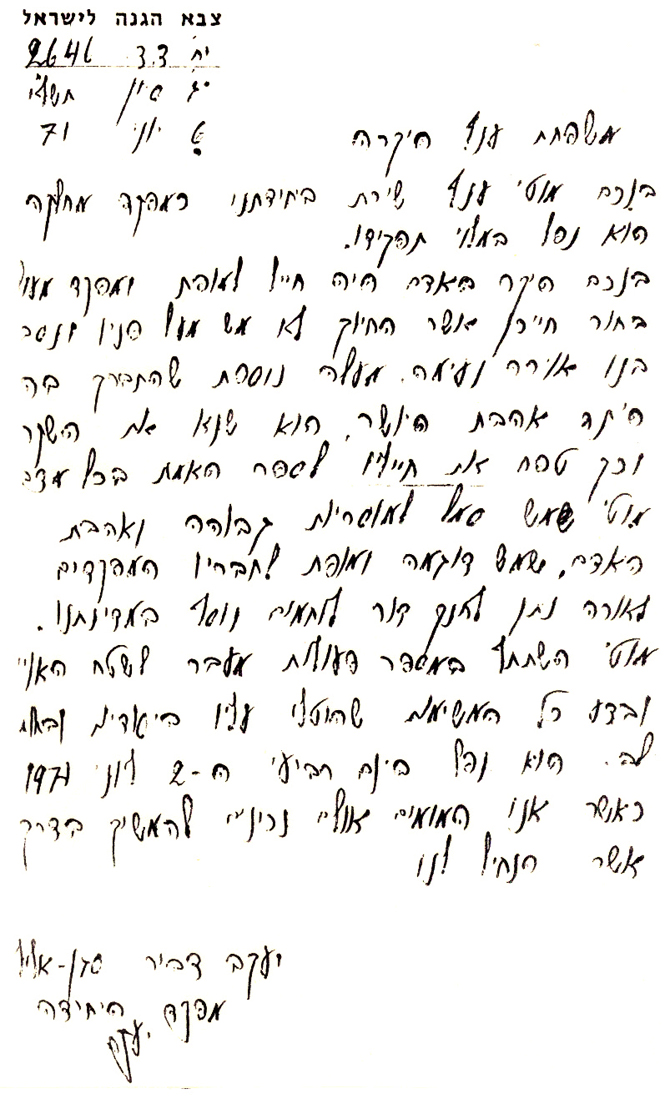 צבא הגנה לישראל
יח' ד.צ 2646
י"ג סיון תשל"א
9 יוני 71
משפחת ענף היקרה
בנכם מוטי ענף שירת ביחידתנו כמפקד מחלקה
הוא נפל במלוי תפקידו.
בנכם היקר האדם היה חייל למופת ומפקד מעולה
בחור חייכן אשר החיוך לא מש מעל פניו ונסך
בנו אוירה נעימה. מעלה נוספת שהתברך בה
היתה אהבת היושר, הוא שנא את השקר
וכך טפח את חייליו לספר האמת בכל מצב
מוטי שמש סמל למוסריות גבוהה ואהבת
האדם, שמש דוגמה ומופת לחבריו המפקדים
לאורה נתן לחנך דור לוחמים נוסף במדינתנו.
מוטי השתתף במספר פעולות מעבר לשטח האויב
ובצע כל המשימות שהוטלו עליו ביעילות ובאומץ
לב. הוא נפל ביום רביעי ה-2 ליוני 1971
כאשר אנו המומים אולם נכונים להמשיך בדרך
אשר הנחיל לנו
יעקב דביר סגן-אלוף
מפקד היחידה
יעקב